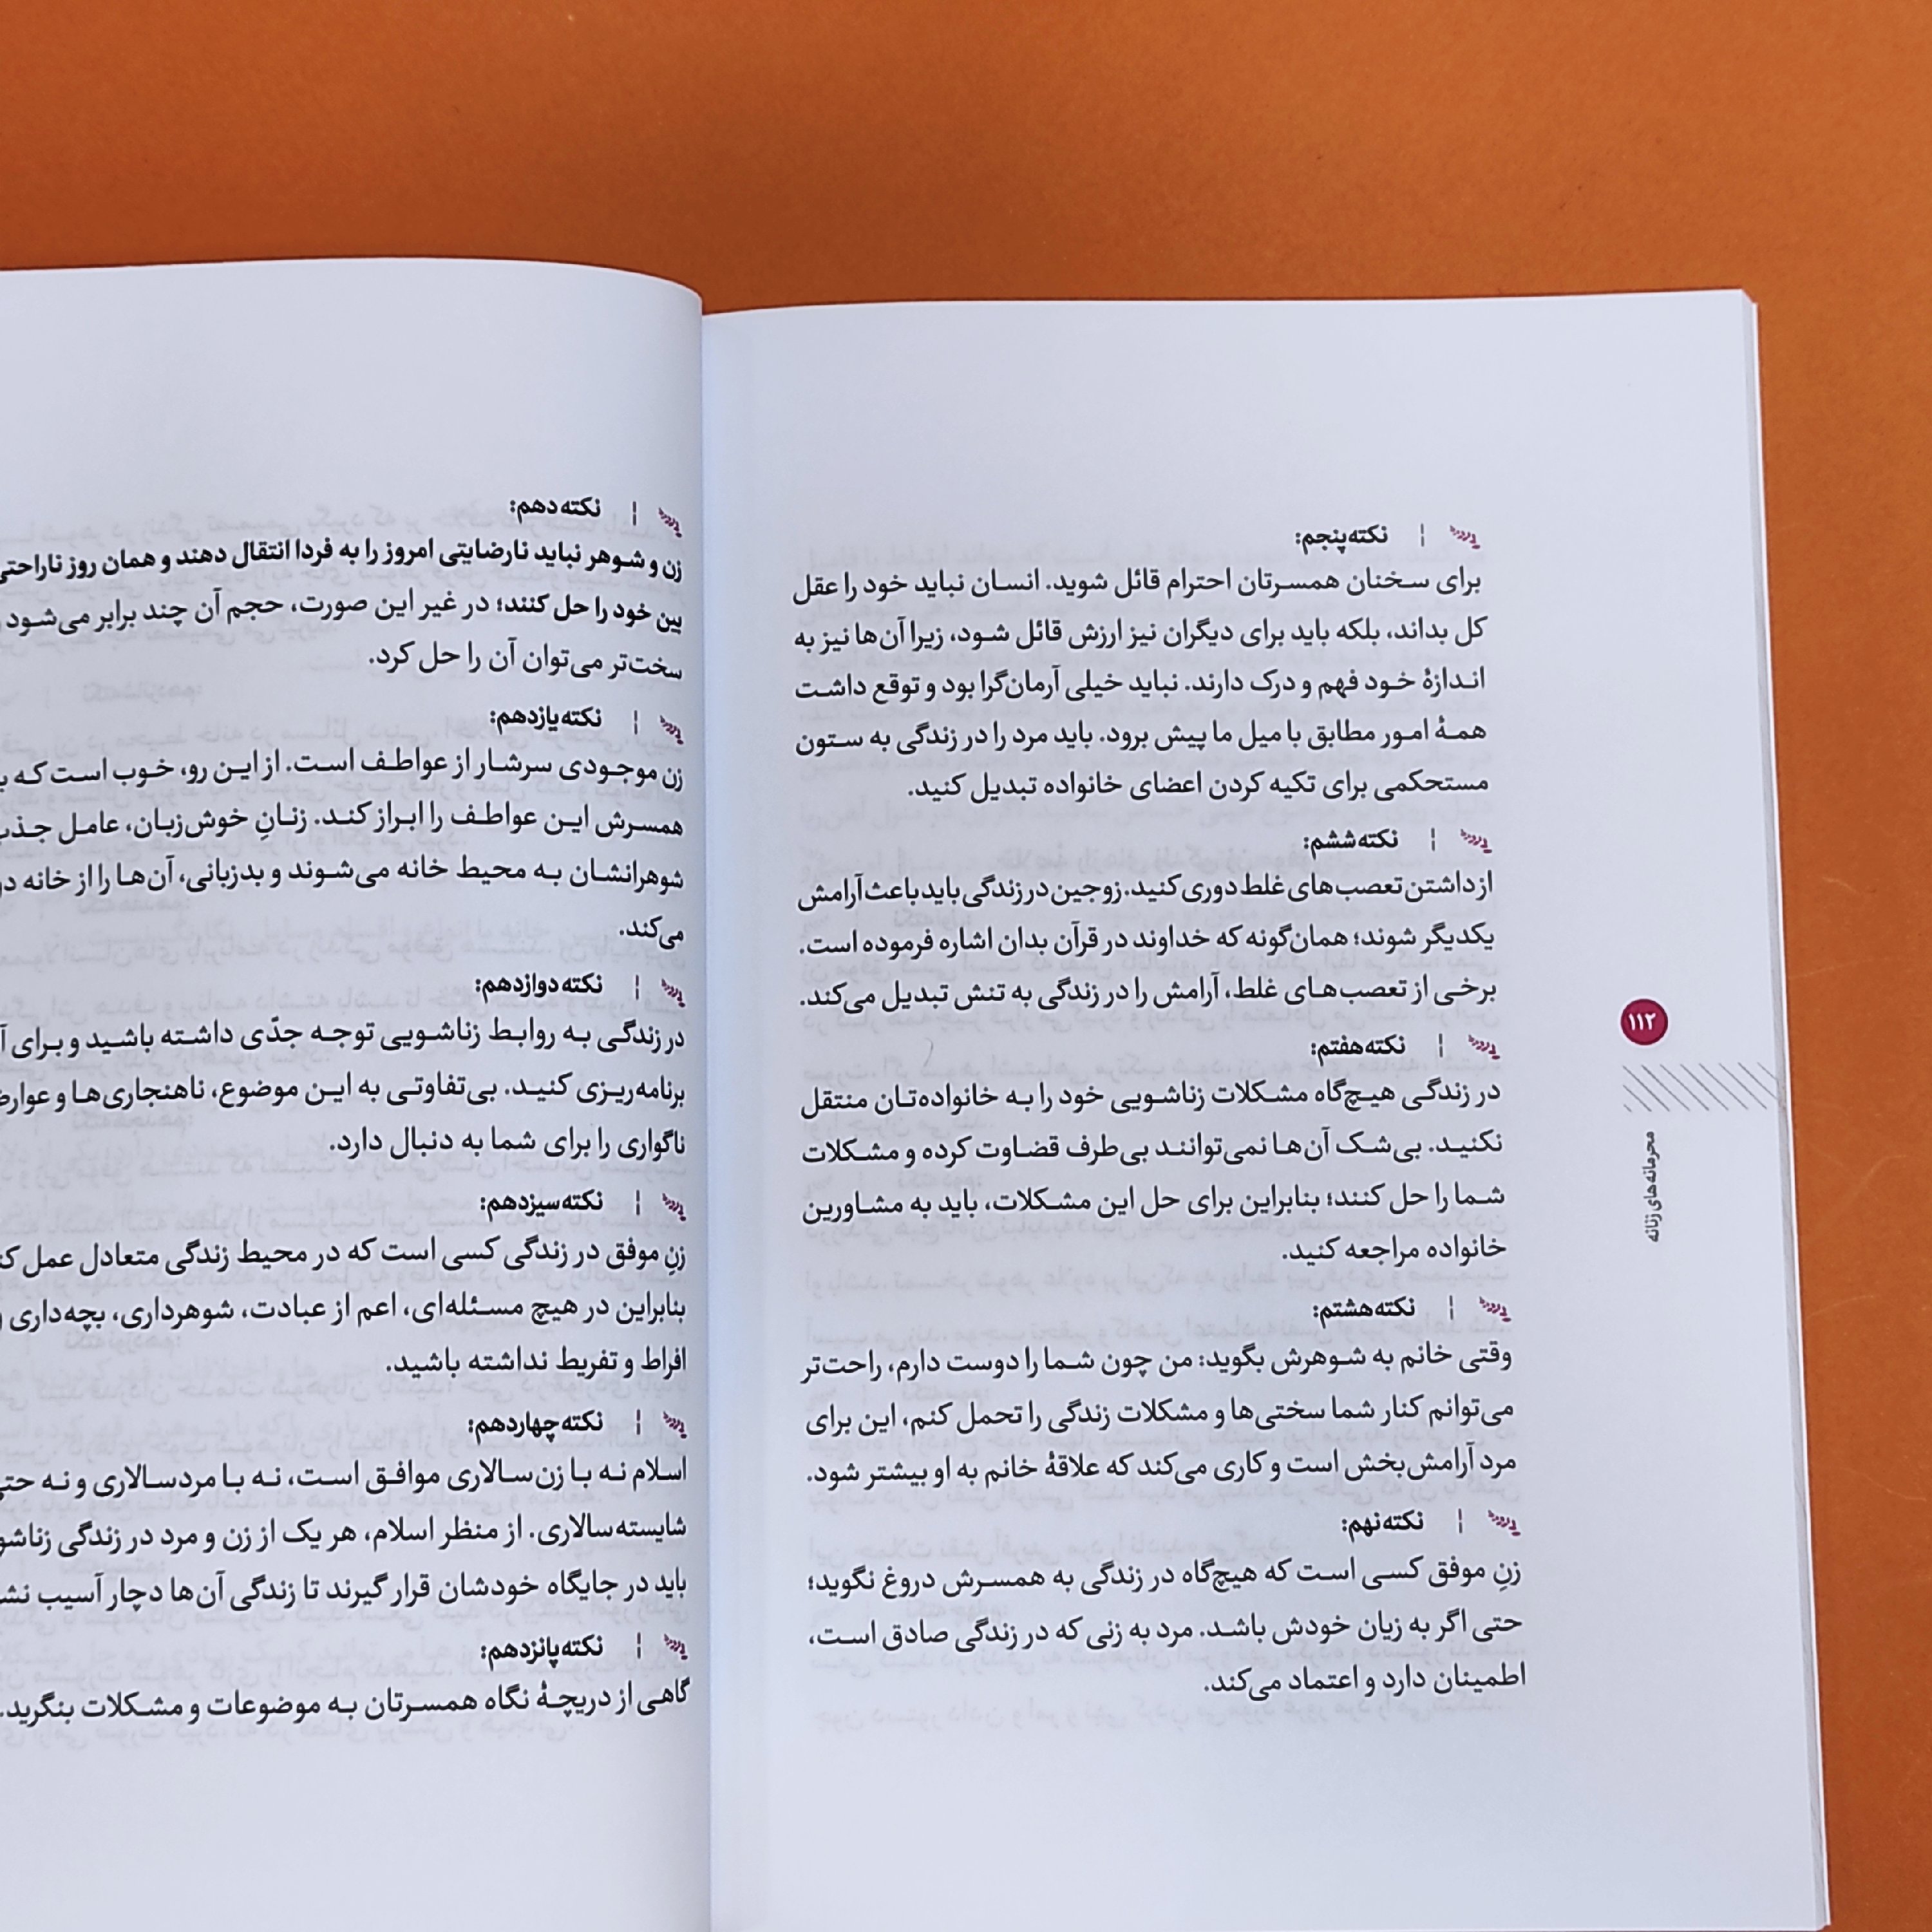 نکته پنجم:
برای سخنان همسرتان احترام قائل شوید. انسان نباید خود را عقل
کل بداند، بلکه باید برای دیگران نیز ارزش قائل شود، زیرا آن‌ها نیز به
اندازهٔ خود فهم و درک دارند. نباید خیلی آرمان‌گرا بود و توقع داشت
همهٔ امور مطابق با میل ما پیش برود. باید مرد را در زندگی به ستون
مستحکمی برای تکیه کردن اعضای خانواده تبدیل کنید.
نکته ششم:
از داشتن تعصب‌های غلط دوری کنید. زوجین در زندگی باید باعث آرامش
یکدیگر شوند؛ همان‌گونه که خداوند در قرآن بدان اشاره فرموده است.
برخی از تعصب‌های غلط، آرامش را در زندگی به تنش تبدیل می‌کند.
نکته هفتم:
در زندگی هیچ‌گاه مشکلات زناشویی خود را به خانواده‌تان منتقل
نکنید. بی‌شک آن‌ها نمی‌توانند بی‌طرف قضاوت کرده و مشکلات
شما را حل کنند؛ بنابراین برای حل این مشکلات، باید به مشاورین
خانواده مراجعه کنید.
نکته هشتم:
وقتی خانم به شوهرش بگوید: من چون شما را دوست دارم، راحت‌تر
می‌توانم کنار شما سختی‌ها و مشکلات زندگی را تحمل کنم، این برای
مرد آرامش‌بخش است و کاری می‌کند که علاقهٔ خانم به او بیشتر شود.
نکته نهم:
زنِ موفق کسی است که هیچ‌گاه در زندگی به همسرش دروغ نگوید؛
حتی اگر به زیان خودش باشد. مرد به زنی که در زندگی صادق است،
اطمینان دارد و اعتماد می‌کند.
۱۱۲
محرمانه‌های زنانه
نکته دهم:
زن و شوهر نباید نارضایتی امروز را به فردا انتقال دهند و همان روز ناراحتی
بین خود را حل کنند؛ در غیر این صورت، حجم آن چند برابر می‌شود
سخت‌تر می‌توان آن را حل کرد.
نکته یازدهم:
زن موجودی سرشار از عواطف است. از این رو، خوب است که
همسرش این عواطف را ابراز کند. زنانِ خوش‌زبان، عامل جذب
شوهرانشان به محیط خانه می‌شوند و بدزبانی، آن‌ها را از خانه
می‌کند.
نکته دوازدهم:
در زندگی به روابط زناشویی توجه جدّی داشته باشید و برای
برنامه‌ریزی کنید. بی‌تفاوتی به این موضوع، ناهنجاری‌ها و
ناگواری را برای شما به دنبال دارد.
نکته سیزدهم:
زنِ موفق در زندگی کسی است که در محیط زندگی متعادل عمل
بنابراین در هیچ مسئله‌ای، اعم از عبادت، شوهرداری، بچه‌داری
افراط و تفریط نداشته باشید.
نکته چهاردهم:
اسلام نه با زن‌سالاری موافق است، نه با مردسالاری و نه
شایسته‌سالاری. از منظر اسلام، هر یک از زن و مرد در زندگی
باید در جایگاه خودشان قرار گیرند تا زندگی آن‌ها دچار آسیب
نکته پانزدهم:
گاهی از دریچهٔ نگاه همسرتان به موضوعات و مشکلات بنگرید.